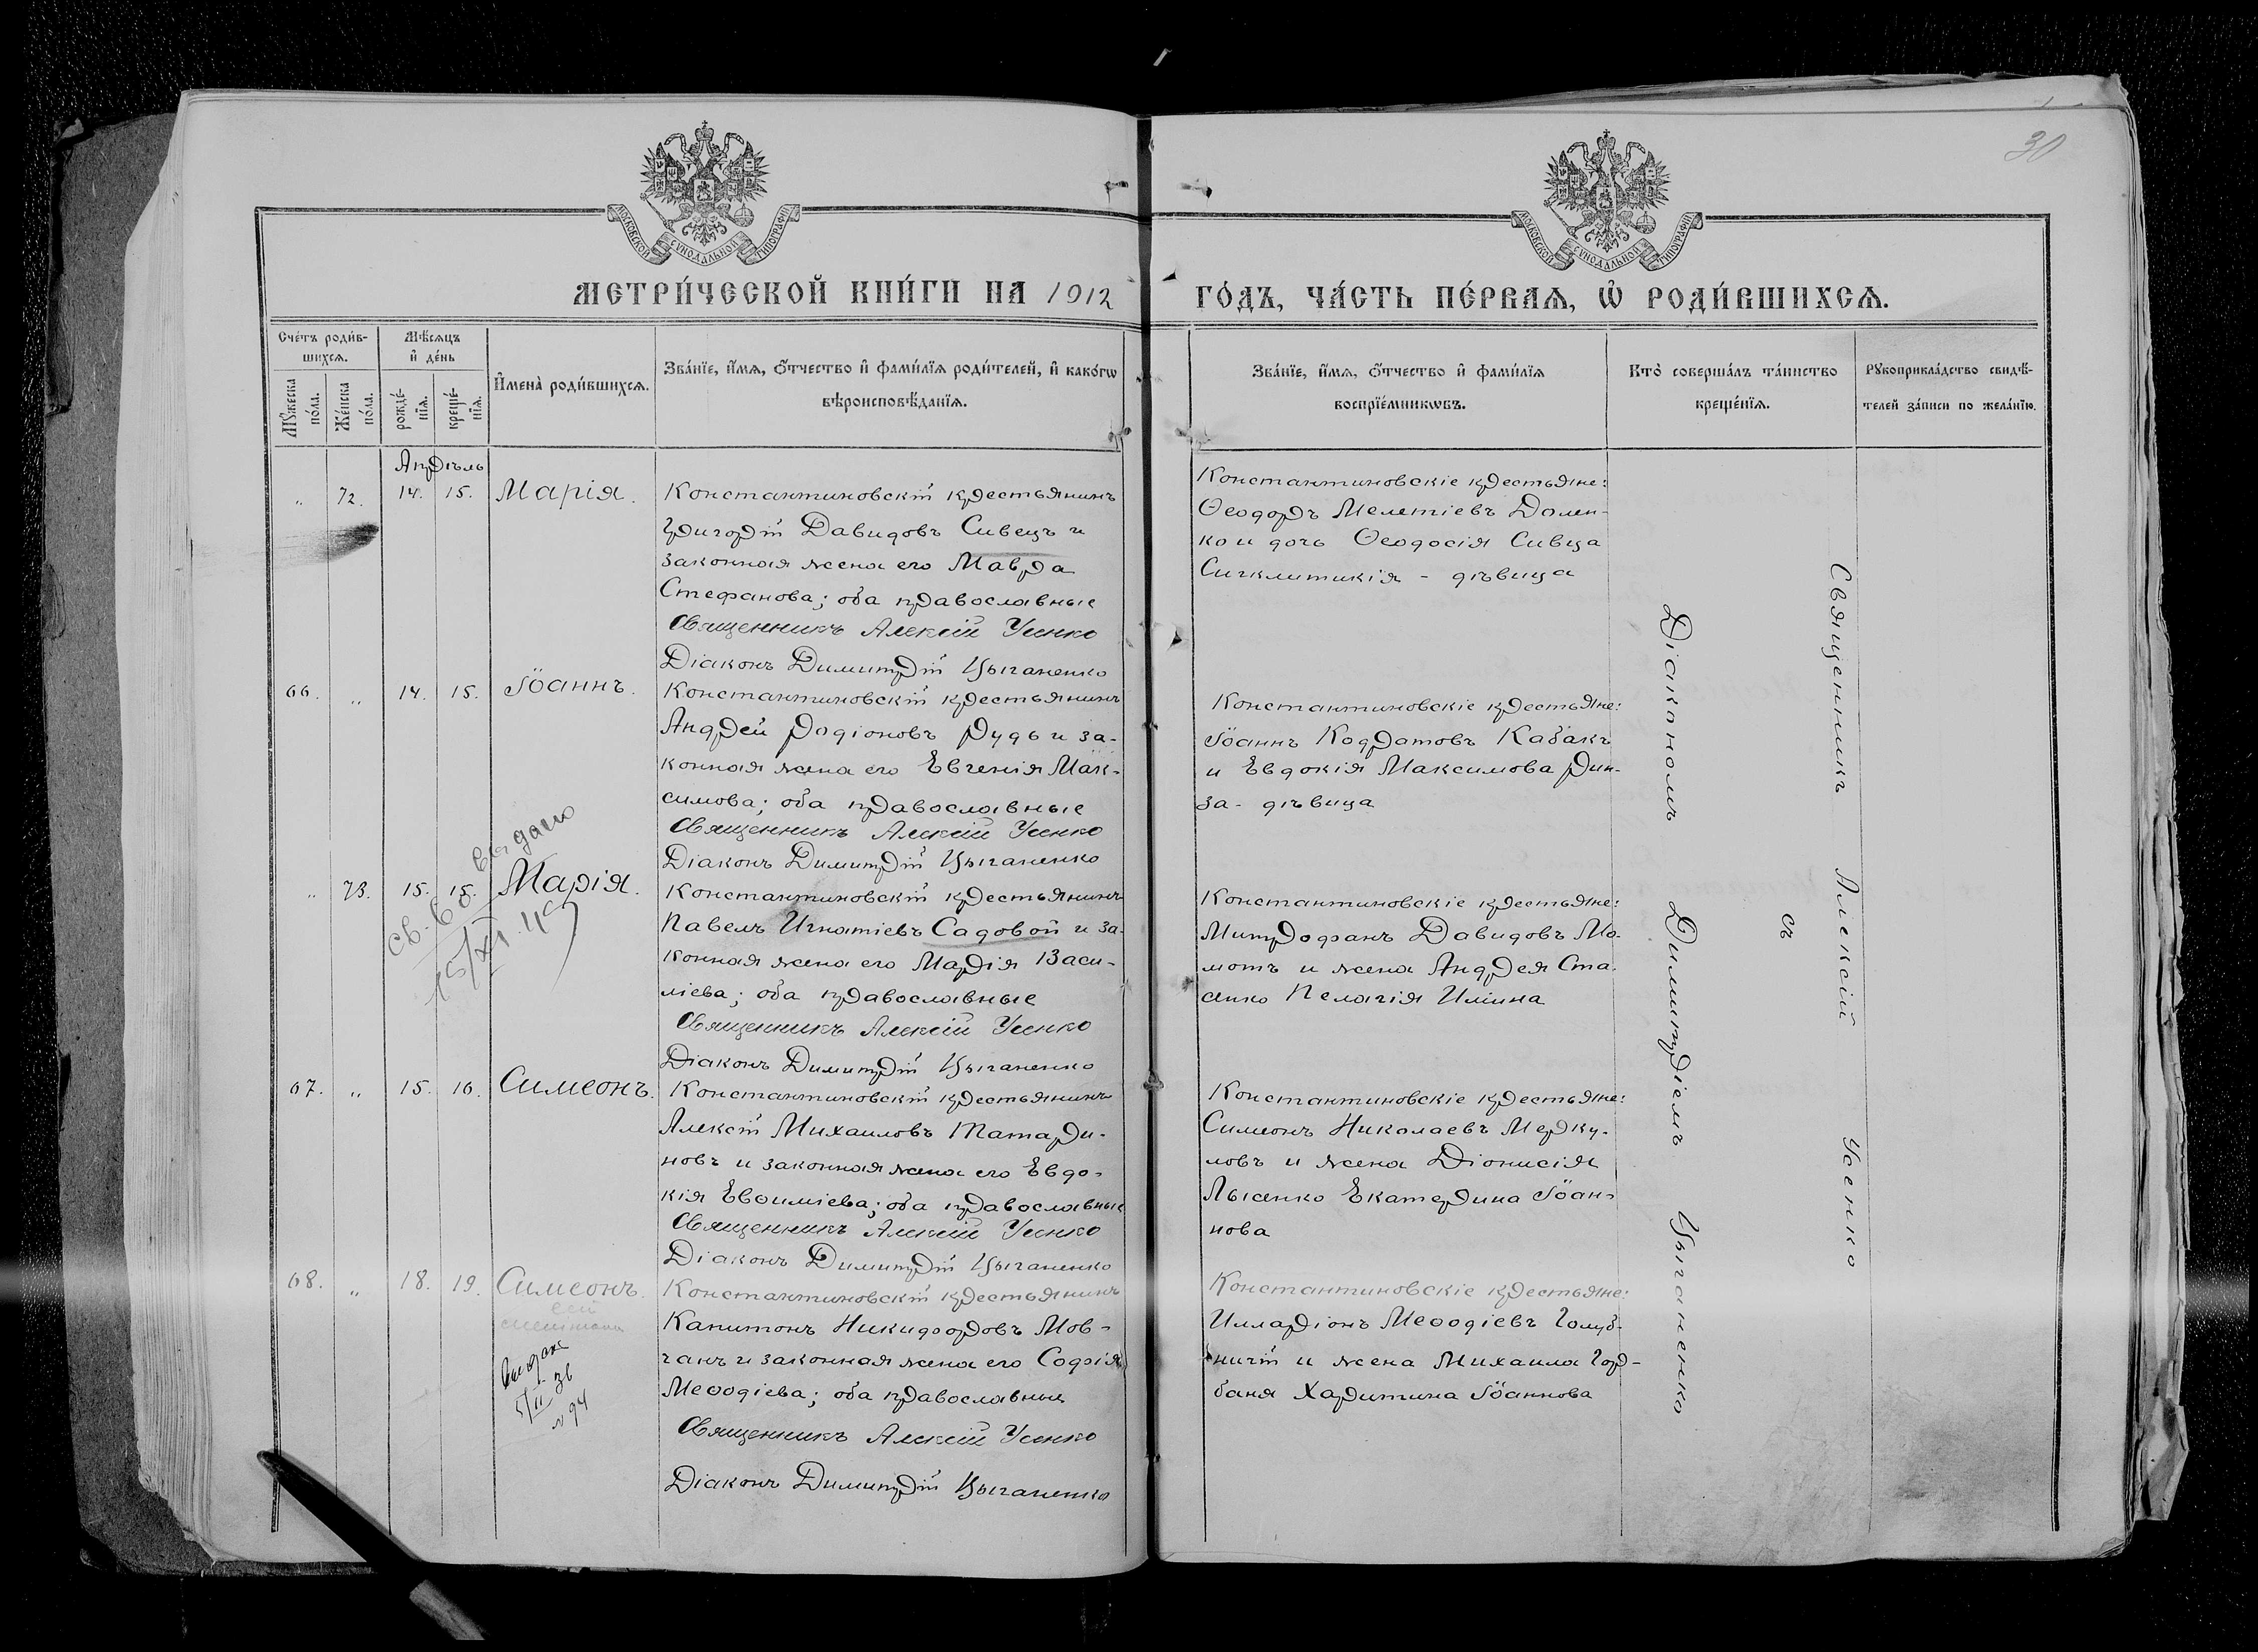 30
МОСКОВСКОЙ СѴНОДАЛЬНОЙ ТИПОГРАФІИ
МОСКОВСКОЙ СѴНОДАЛЬНОЙ ТИПОГРАФІИ
МЕТРИ́ЧЕСКОЙ КНИ́ГИ НА 1912 ГО́ДЪ, ЧА́СТЬ ПЕ́РВАѦ, Ѡ҆ РОДИ́ВШИХСѦ.
Сче́тъ роди́в-
шихсѧ.
Мꙋ́жеска по́ла.
Же́нска по́ла.
Мѣ́сѧцъ
и҆ де́нь
рожде́-
нїѧ.
креще́-
нїѧ.
И҆мена̀ роди́вшихсѧ.
Зва́нїе, и҆́мѧ, ѻ҆́тчество и҆ фами́лїѧ роди́телей, и҆ како́гѡ
вѣроисповѣ́данїѧ.
Зва́нїе, и҆́мѧ, ѻ҆́тчество и҆ фами́лїѧ
воспрїе́мникѡвъ.
Кто̀ соверша́лъ та́инство
креще́нїѧ.
Рꙋкоприкла́дство свидѣ́-
телей за́писи по жела́нїю.
Апрѣль
" 72. 14. 15. Марія.
Константиновскій крестьянинъ
Григорій Давидовъ Сивецъ и
законная жена его Мавра
Стефанова; оба православные
Священникъ Алексій Усенко
Діаконъ Димитрій Цыганенко
Константиновскіе крестьяне:
Ѳеодоръ Мелетіевъ Долен-
ко и дочь Ѳеодосія Сивца
Сигклитикія - дѣвица
66. " 14. 15. Іоаннъ.
Константиновскій крестьянинъ
Андрей Родіоновъ Рудь и за-
конная жена его Евгенія Мак-
симова; оба православные
Священникъ Алексій Усенко
Діаконъ Димитрій Цыганенко
Константиновскіе крестьяне:
Іоаннъ Кодратовъ Кабакъ
и Евдокія Максимова Рин-
за - дѣвица
" 73. 15. 15. Марія.
Св. во выдано
15/XI 45
Константиновскій крестьянинъ
Павелъ Игнатіевъ Садовой и за-
конная жена его Марія Васи-
ліева; оба православные
Священникъ Алексій Усенко
Діаконъ Димитрій Цыганенко
Константиновскіе крестьяне:
Митрофанъ Давидовъ Мо-
мотъ и жена Андрея Ста-
сенко Пелагія Иліина
67. " 15. 16. Симеонъ.
Константиновскій крестьянинъ
Алексій Михаиловъ Татари-
новъ и законная жена его Евдо-
кія Евѳиміева; оба православные
Священникъ Алексій Усенко
Діаконъ Димитрій Цыганенко
Константиновскіе крестьяне:
Симеонъ Николаевъ Мерку-
ловъ и жена Діонисія
Лысенко Екатерина Іоан-
нова
68. " 18. 19. Симеонъ.
Выдано
5/II 36
№ 94
Константиновскій крестьянинъ
Капитонъ Никифоровъ Мов-
чанъ и законная жена его Софія
Меѳодіева; оба православные
Священникъ Алексій Усенко
Діаконъ Димитрій Цыганенко
Константиновскіе крестьяне:
Илларіонъ Меѳодіевъ Голуб-
ничій и жена Михаила Гор-
баня Харитина Іоаннова
Священникъ Алексій Усенко
съ
Діакономъ Димитріемъ Цыганенко